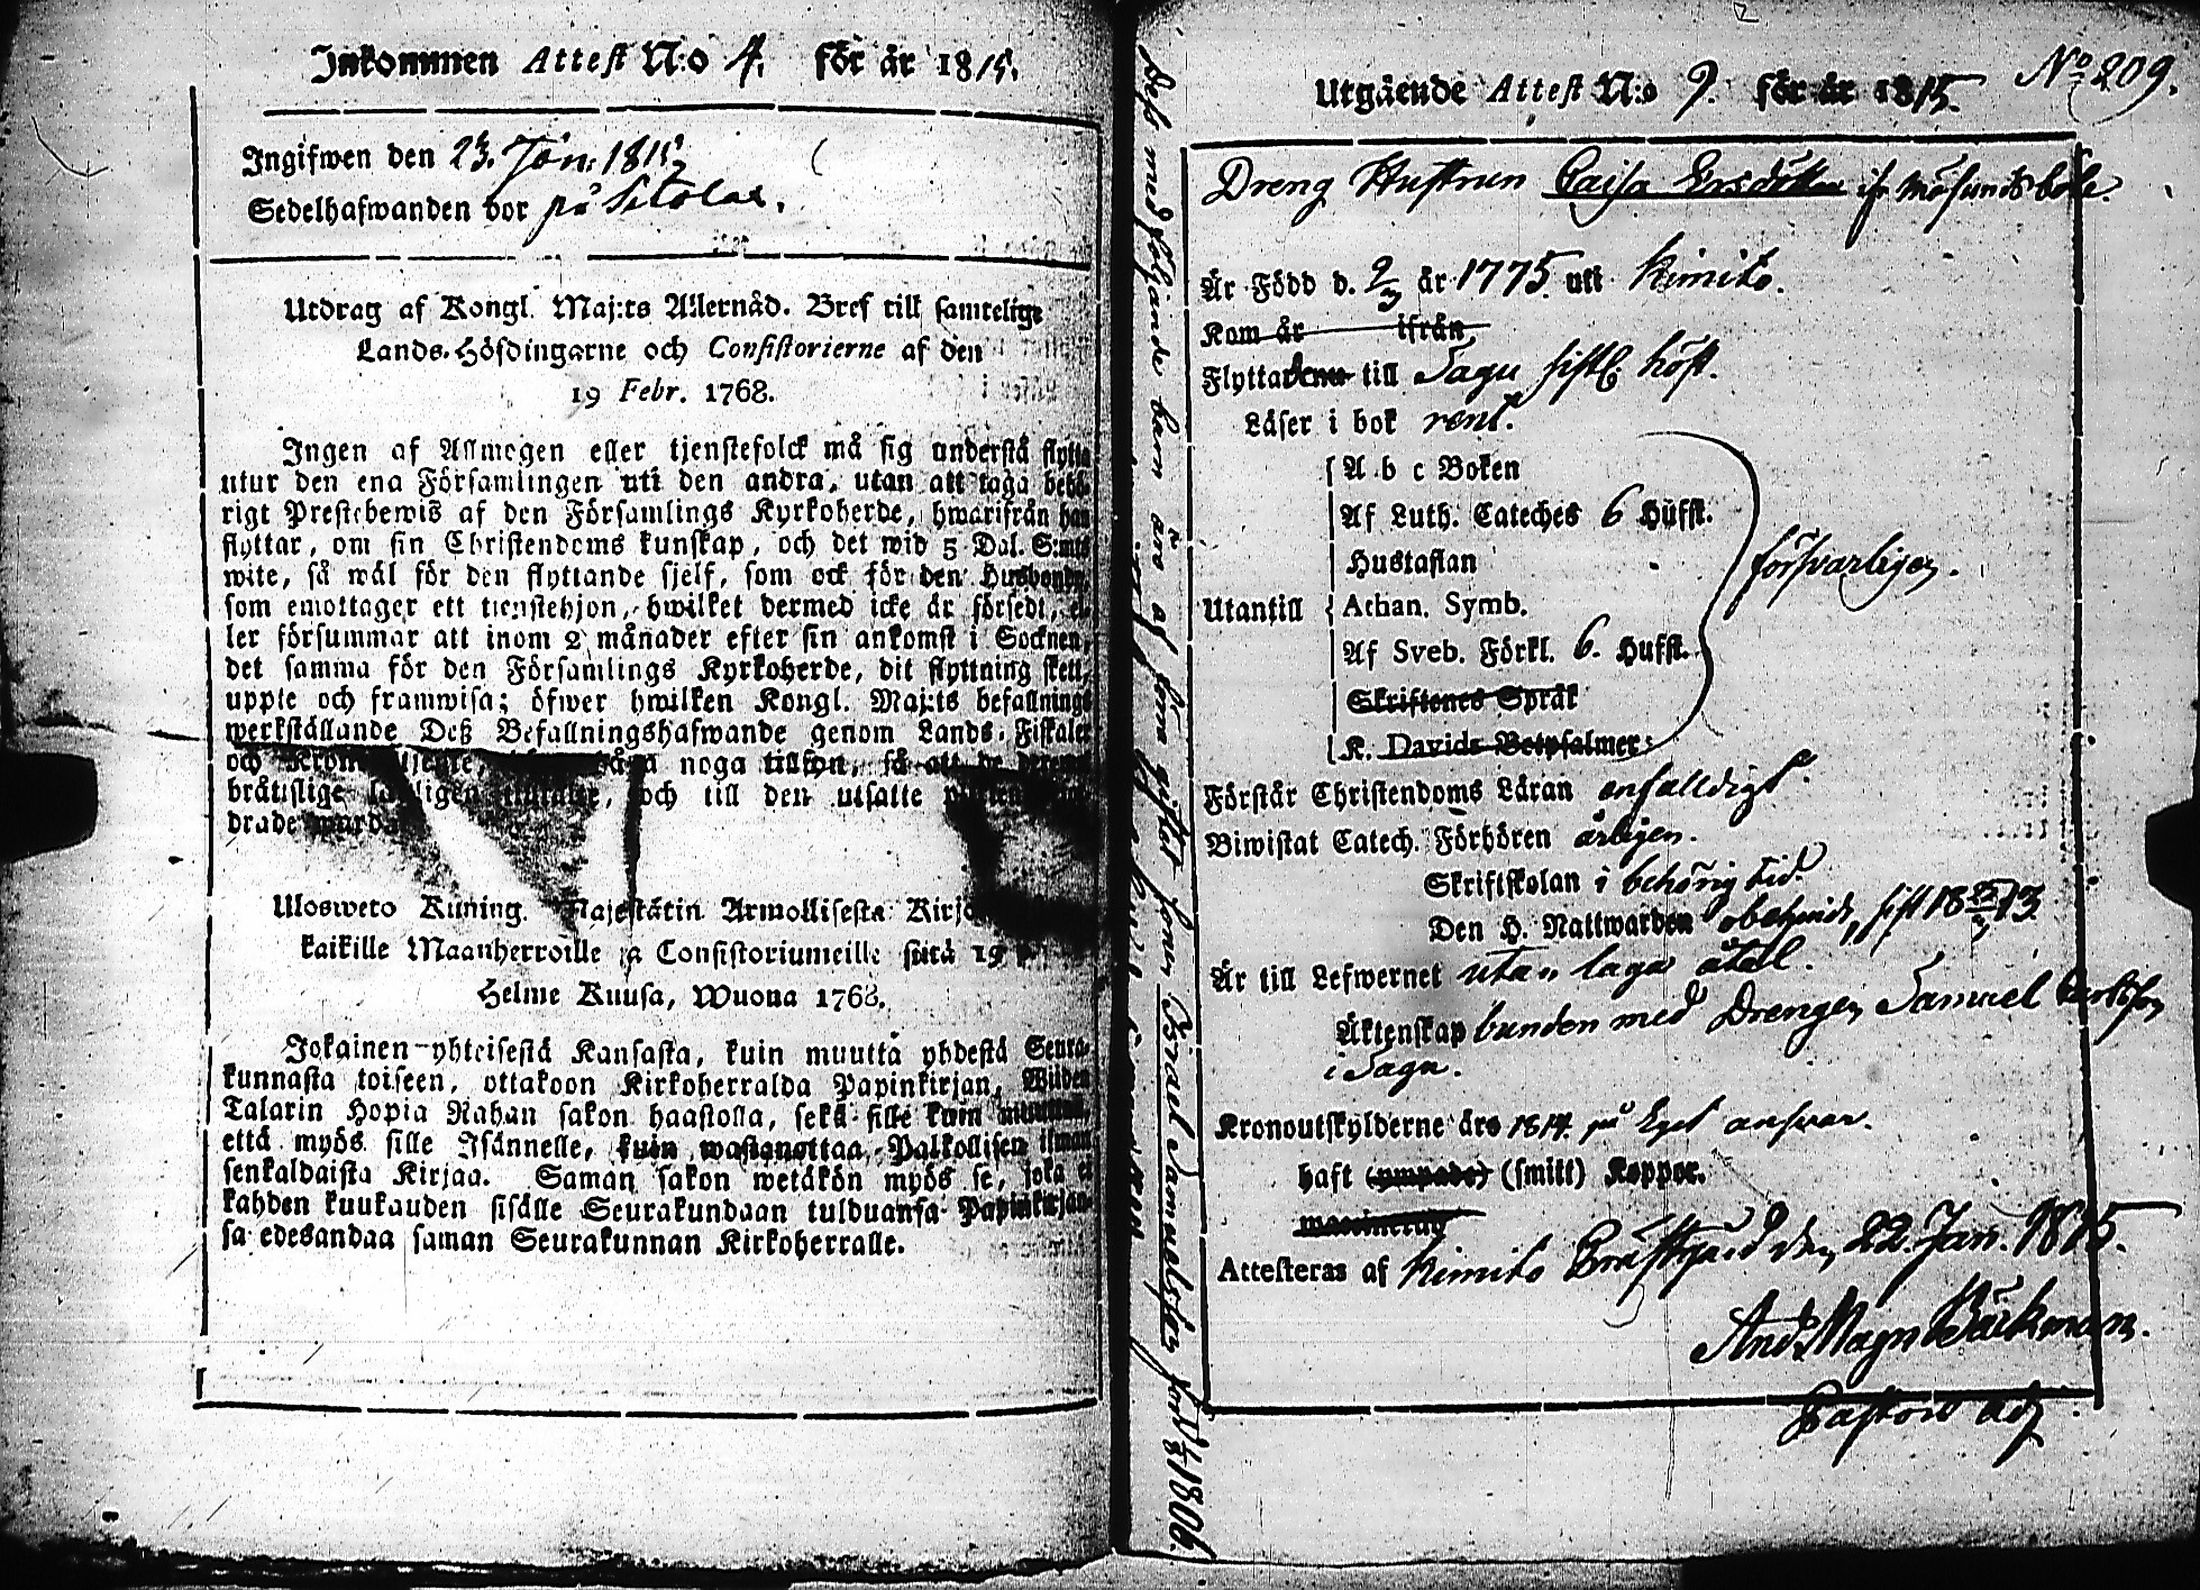 Inkommen Attest N:o 4. för år 1815.
Ingifwen den 23. Jan. 1815
Sedelhafwanden bor på
Utdrag af Kongl. Maj:ts Allernåd. Bref till samtelige
Lands-Höfdingarne och Consistorierne af den
19 Febr. 1768.
Ingen af Allmogen eller tjenstefolck må sig understå flytta
utur den ena Församlingen uti den andra, utan att taga behö-
rigt Prestebewis af den Församlings Kyrkoherde, hwarifrån han
flyttar, om sin Christendoms kunskap, och det wid 5 Dal. S:mts
wite, så wäl för den flyttande sjelf, som ock för den Husbonde,
som emottager ett tjenstehjon, hwilket dermed icke är försedt, el-
ler försummar att inom 2 månader efter sin ankomst i Socknen,
det samma för den Församlings Kyrkoherde, dit flyttning skett,
uppte och framwisa; öfwer hwilken Kongl. Maj:ts befallnings
werkställande Deß Befallningshafwande genom Lands-Fiskaler
och noga tillsyn, så att de
bråtislige och till den utsatte
drade
Ulosweto Kuning. Majestätin Armollisesta Kirj
kaikille Maanherroille ja Consistoriumeille siitä 19
Helme Kuusa, Wuona 1768.
Jokainen yhteisestä Kansasta, kuin muutta yhdestä Seura-
kunnasta toiseen, ottakoon Kirkoherralda Papinkirjan, Wiiden
Talarin Hopia Rahan sakon haastolla, sekä sille kuin muuttaa,
että myös sille Isännelle, kuin wastanottaa Palkollisen ilman
senkaldaista Kirjaa. Saman sakon wetäkön myös se, joka ei
kahden kuukauden sisälle Seurakundaan tulduansa Papinkirjan-
sa edesandaa saman Seurakunnan Kirkoherralle.
Deß medföljande barn äro af förra giftet sonen Israel Samuelsson född 1806.
Utgående Attest N:o 9. för år 1815. No 209.
Dreng Hustrun Caisa Ersdotter ifr Mösundsbole.
Är Född d. 9/3 år 1775 uti Kimito.
Kom år ifrån
Flyttade till Sagu sistl. höst.
Läser i bok rent.
A b c Boken
Af Luth. Cateches 6 Hufst.
Hustaflan
Utantill
Athan. Symb.
Af Sveb. Förkl. 6. Hufst.
Skriftenes Språk
K. Davids Botpsalmer:
försvarligen.
Förstår Christendoms Läran enfalldigt.
Biwistat Catech. Förhören årligen.
Skriftskolan i behörig tid.
Den H. Nattwarden obehindr, sist 1813
Är till Lefwernet utan laga åtal.
Äktenskap bunden med Drengen Samuel Carlsson
i Sagu.
Kronoutskylderne års 1814. på Eget answar.
haft (ympade) (smitt) Koppor.
waccinerad
Attesteras af Kimito Prästgård den 22. Jan. 1815.
And. Magn Bäckman.
Pastors Adj